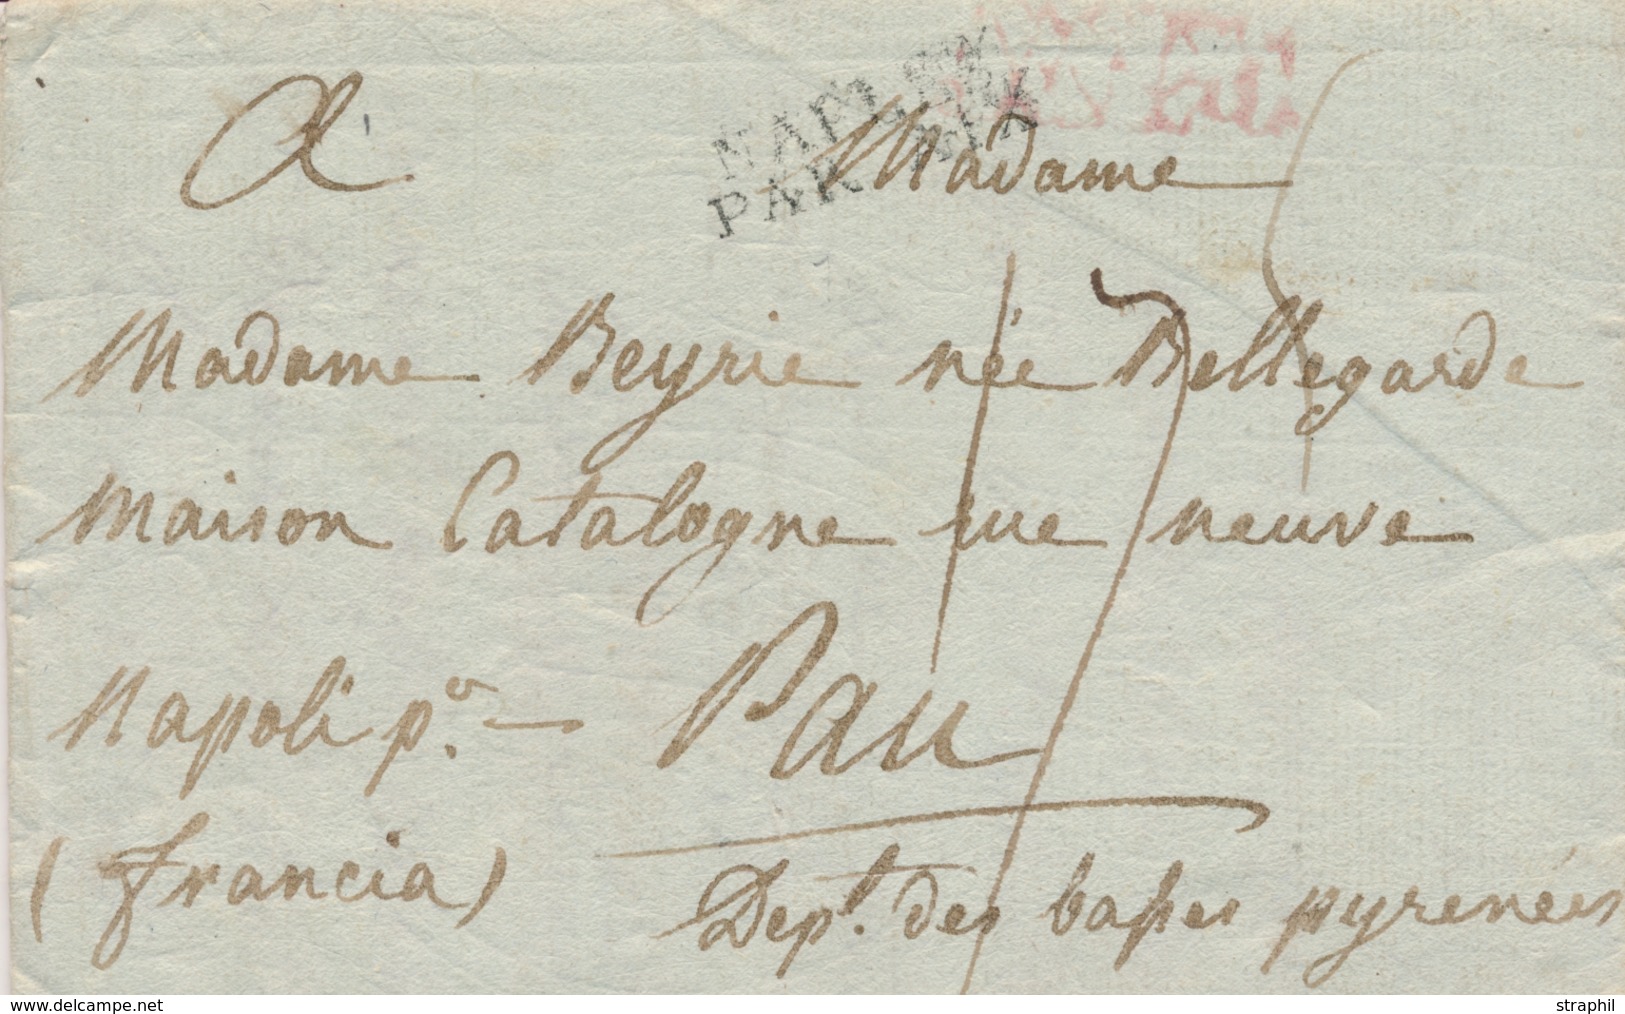 A
NAPLES
PAR
Madame
Madame Beyrie née Bellegarde
maison Catalogne rue neuve
Napoli p.r Pau
(francia)
Dept. des basses pyrenées
17
delcampe.net
straphil